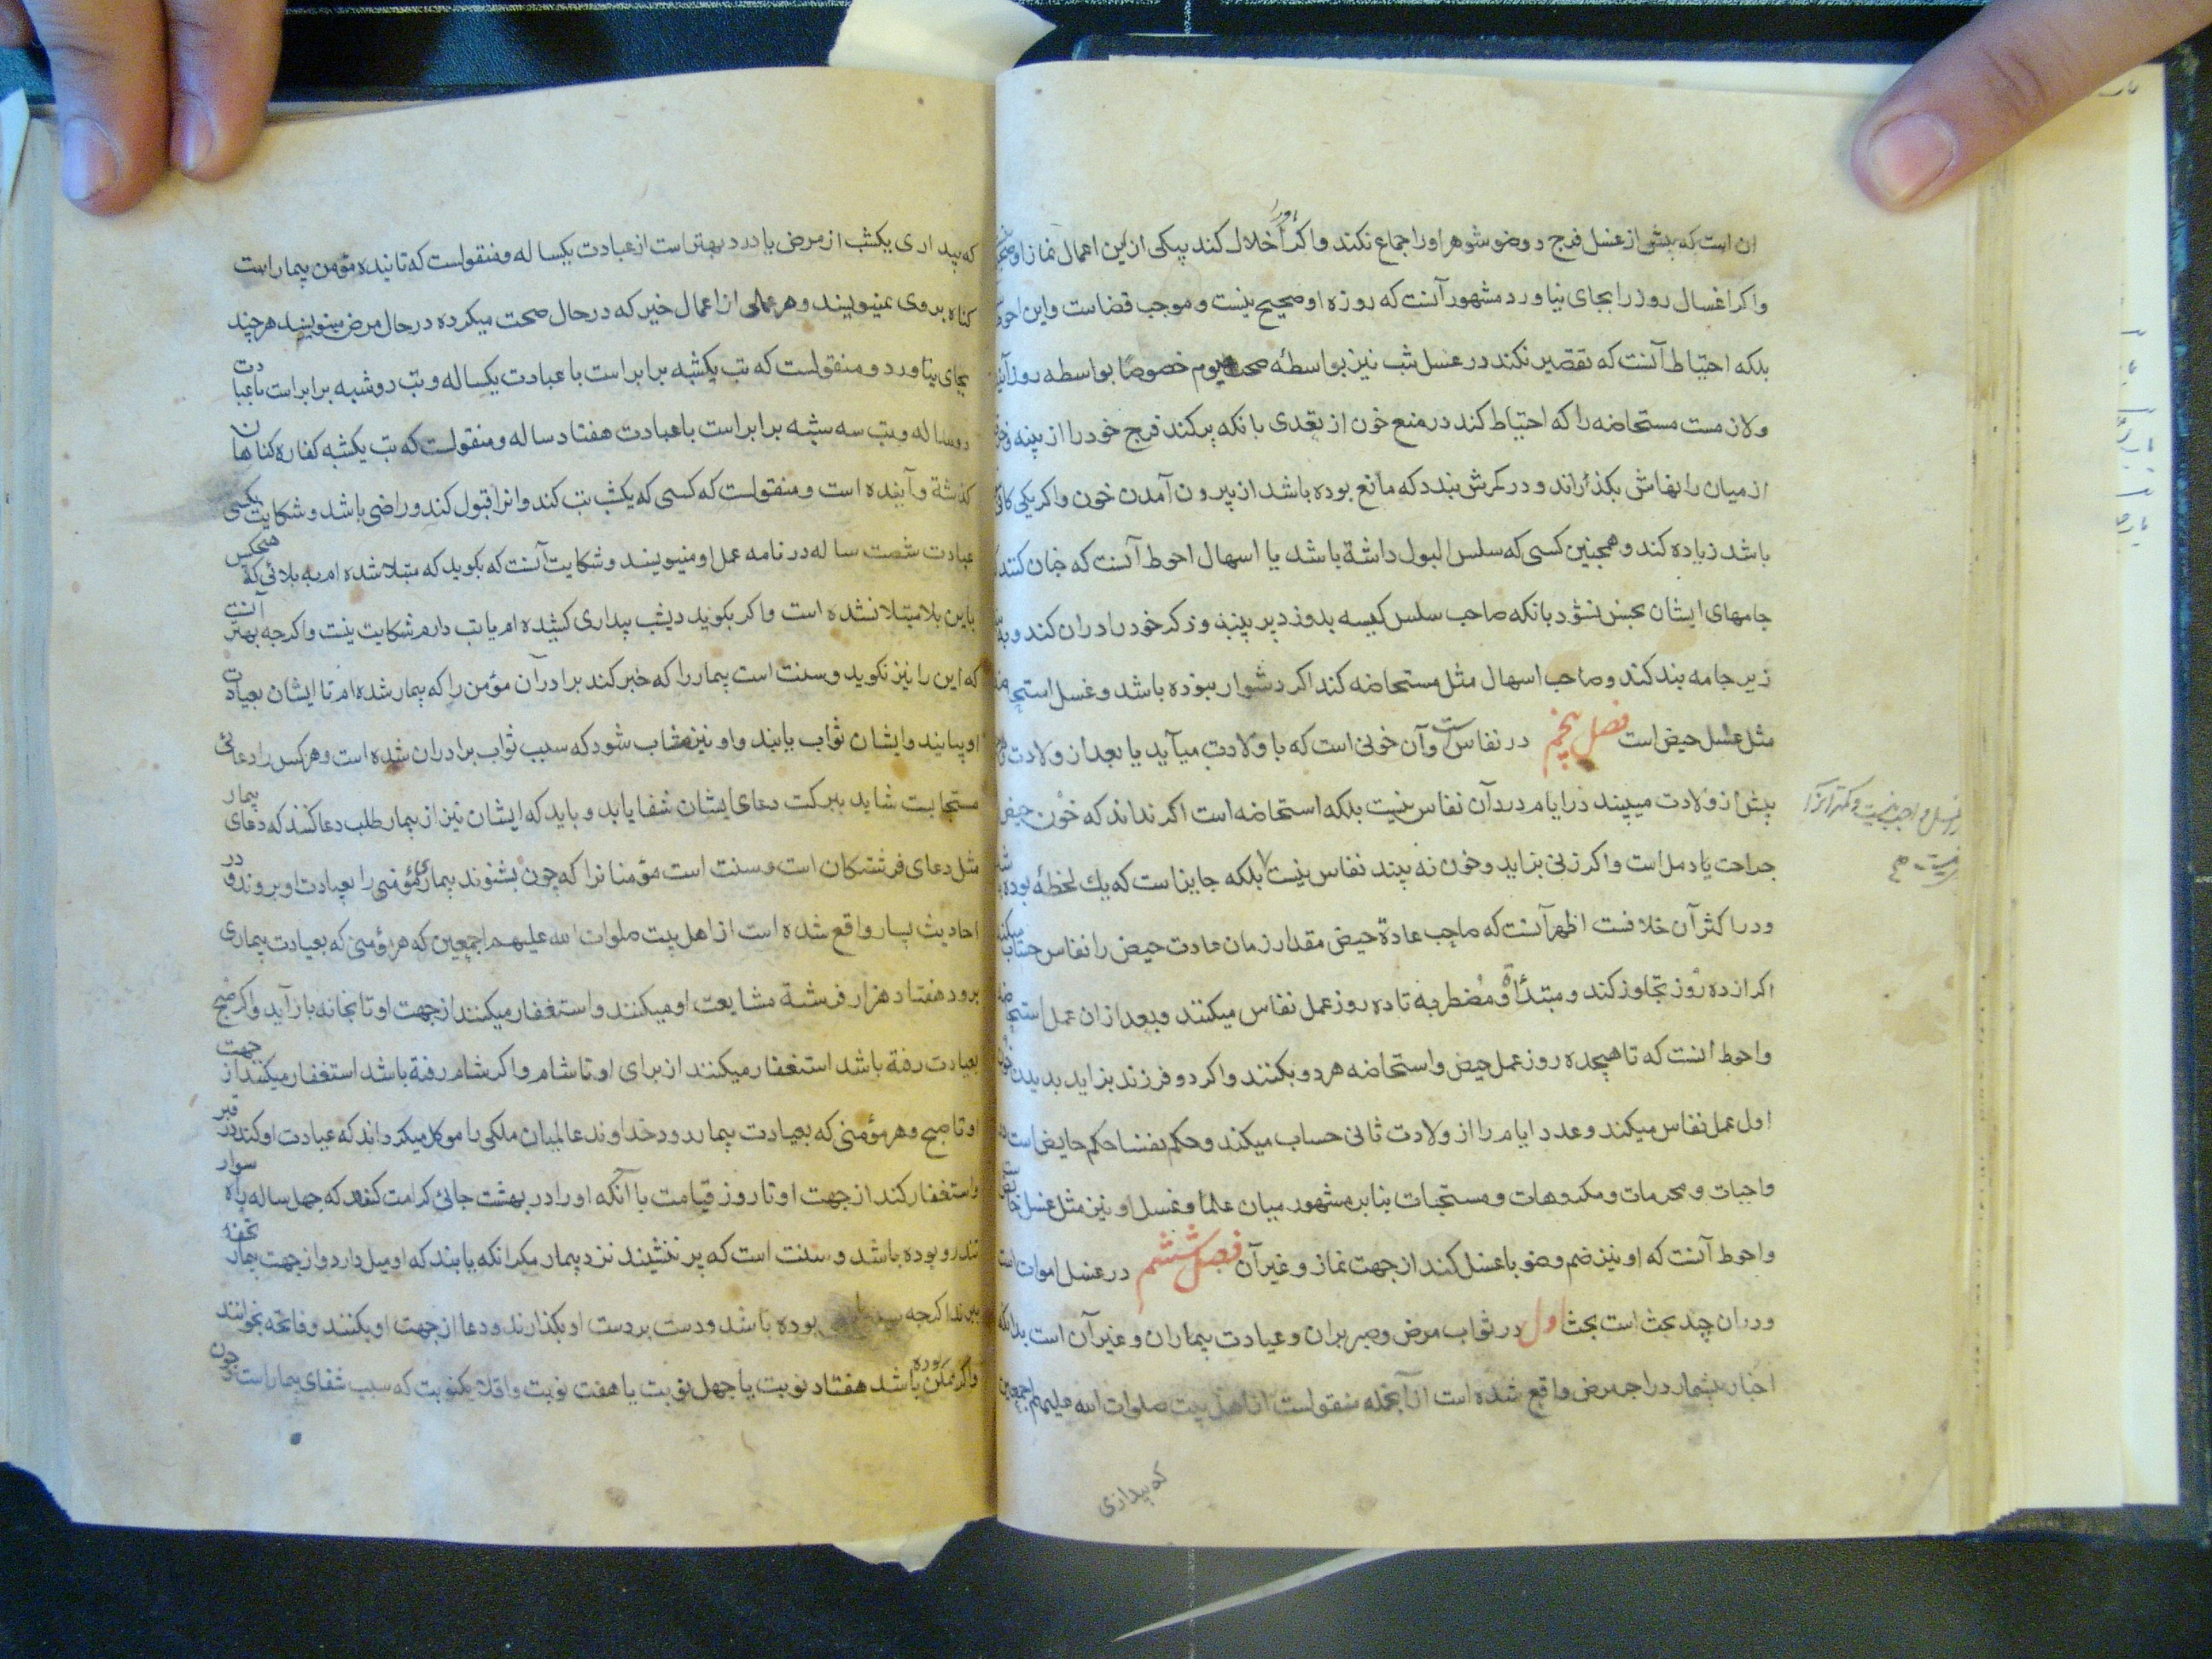 ان است که پیش از غسل فرج و وضو شوهر او را جماع نکند و اکر اخلال کند بیکی از این اعمال نماز او
واکر اغسال روز را بجای نیاورد مشهور آنست که روزه او صحیح نیست و موجب قضاست و این احوط
بلکه احتیاط آنست که تقصیر نکند در غسل شب نیز بواسطهٔ صحت صوم خصوصًا بواسطه روز
ولازمست مستحاضه را که احتیاط کند در منع خون از تعدی بانکه پر کند فرج خود را از پنبه و
از میان رانهاش بکذراند و در کمرش بندد که مانع بوده باشد از بیرون آمدن خون واکر یکی
باشد زیاده کند و همچنین کسی که سلس البول داشته باشد یا اسهال احوط آنست که چنان کنند
جامهای ایشان نجس نشود بانکه صاحب سلس کیسه بدوزد پر پنبه و ذکر خود را در ان کند و
زیر جامه بند کند و صاحب اسهال مثل مستحاضه کند اکر دشوار نبوده باشد و غسل استحاضه
مثل غسل حیض است فصل پنجم در نفاس است وآن خونی است که با ولادت میآید یا بعد از ولادت
پیش از ولادت میبیند در ایام درد آن نفاس نیست بلکه استحاضه است اکر نداند که خون حیض
جراحت یا دمل است واکر زنی بزاید و خون نه بیند نفاس نیست بلکه جایز است که یك لحظهٔ بوده باشد
ودر اکثر آن خلافست اظهر آنست که صاحب عادة حیض مقدار زمان عادت حیض را نفاس حساب میکند
اکر از ده روز تجاوز کند و مبتدأه و مضطربه تا ده روز عمل نفاس میکنند و بعد از ان عمل استحاضه
واحوط انست که تا هیجده روز عمل حیض واستحاضه هر دو بکنند واکر دو فرزند بزاید بدیدن خون
اول عمل نفاس میکند وعدد ایام را از ولادت ثانی حساب میکند وحکم نفسا حکم حایض است در
واجبات و محرمات و مکروهات و مستحبات بنابر مشهور میان علما و غسل او نیز مثل غسل حایض
واحوط آنست که او نیز ضم وضو با غسل کند از جهت نماز و غیر آن فصل ششم در غسل اموات است
ودران چند بحث است بحث اول در ثواب مرض وصبر بران و عیادت بیماران و غیر آن است بدانکه
اخبار بیشمار در اجر مرض واقع شده است از آنجمله منقولست از اهل بیت صلوات الله علیهم اجمعین
که بیداری
که بیداری یکشب از مرض یا درد بهتر است از عبادت یکساله و منقولست که تا بنده مؤمن بیمار است
کناه بروی نمینویسند و هر عملی از اعمال خیر که در حال صحت میکرده در حال مرض مینویسند هر چند
بجای نیاورد و منقولست که تب یکشبه برابر است با عبادت یکساله و تب دوشبه برابر است با عبادت
دوساله و تب سه شبه برابر است با عبادت هفتاد ساله و منقولست که تب یکشبه کفاره کناهان
کذشته و آینده است و منقولست که کسی که یکشب تب کند و انرا قبول کند و راضی باشد و شکایت بکسی
عبادت شصت ساله در نامه عمل او مینویسند و شکایت آنست که بکوید که مبتلا شده ام به بلائی که هیچکس
باین بلا مبتلا نشده است واکر بکوید دیشب بیداری کشیده ام یا تب دارم شکایت نیست واکرچه بهتر آنست
که این را نیز نکوید و سنت است بیمار را که خبر کند برادرآن مؤمن را که بیمار شده ام تا ایشان بعیادت
او بیایند وایشان ثواب یابند واو نیز مثاب شود که سبب ثواب برادران شده است و هر کس را دعائی
مستجابست شاید ببرکت دعای ایشان شفا یابد و باید که ایشان نیز از بیمار طلب دعا کنند که دعای بیمار
مثل دعای فرشتکان است و سنت است مؤمنانرا که چون بشنوند بیماری مؤمنی را بعیادت او بروند و در
احادیث بسیار واقع شده است از اهل بیت صلوات الله علیهم اجمعین که هر مؤمنی که بعیادت بیماری
برود هفتاد هزار فرشته مشایعت او میکنند واستغفار میکنند از جهت او تا بخانه باز آید واکر صبح
بعیادت رفته باشد استغفار میکنند از برای او تا شام واکر شام رفته باشد استغفار میکنند از جهت
او تا صبح و هر مؤمنی که بعیادت بیمار رود خداوند عالمیان ملکی را موکل میکرداند که عیادت او کند در قبر
واستغفار کند از جهت او تا روز قیامت با آنکه او را در بهشت جائی کرامت کند که چهل ساله راه سوار
تندرو بوده باشد و سنت است که پر ننشیند نزد بیمار مکر انکه یابند که او میل دارد و از جهت بیمار تحفه
ببرند اکرچه بوده باشد و دست بر دست او بکذارند و دعا از جهت او بکنند و فاتحه بخوانند
واکر ممکن بوده باشد هفتاد نوبت یا چهل نوبت یا هفت نوبت واقلا یکنوبت که سبب شفای بیمار است و چون